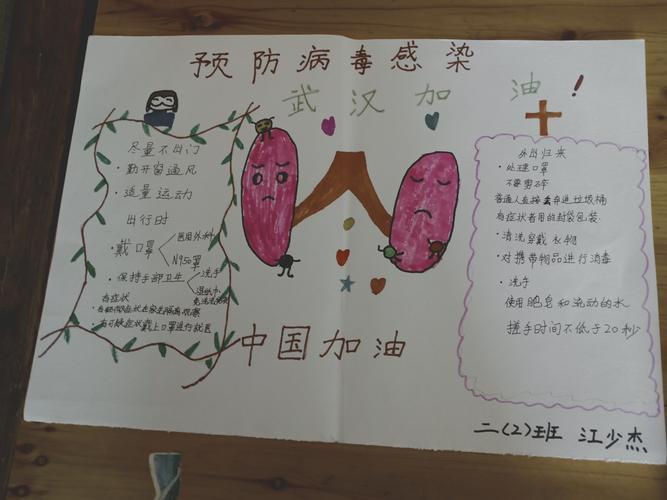 预防病毒感染
武汉加油!
尽量不出门
·勤开窗通风
·适量运动
出行时
·戴口罩
医用外科
N95口罩
·保持手部卫生
洗手
湿纸巾
免洗洗手液
有症状
·戴上口罩进行就医
中国加油
外出归来
·处理口罩
不要剪碎
普通人直接弃垃圾桶
有症状者用的封袋包装
·清洗穿戴衣物
·对携带物品进行消毒
·洗手
使用肥皂和流动的水
搓手时间不低于20秒
二(2)班 江少杰